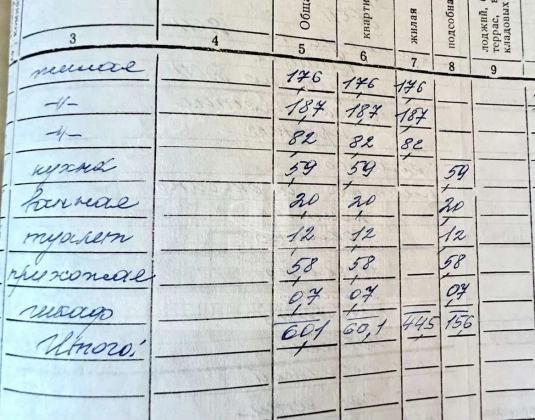 Обща
кварти
жилая
подсобна
лоджий,
террас, в
кладовых
3 4 5 6 7 8 9
жилая 17,6 17,6 17,6
-"- 18,7 18,7 18,7
-"- 8,2 8,2 8,2
кухня 5,9 5,9 5,9
ванная 2,0 2,0 2,0
туалет 1,2 1,2 1,2
прихожая 5,8 5,8 5,8
шкаф 0,7 0,7 0,7
Итого: 60,1 60,1 44,5 15,6